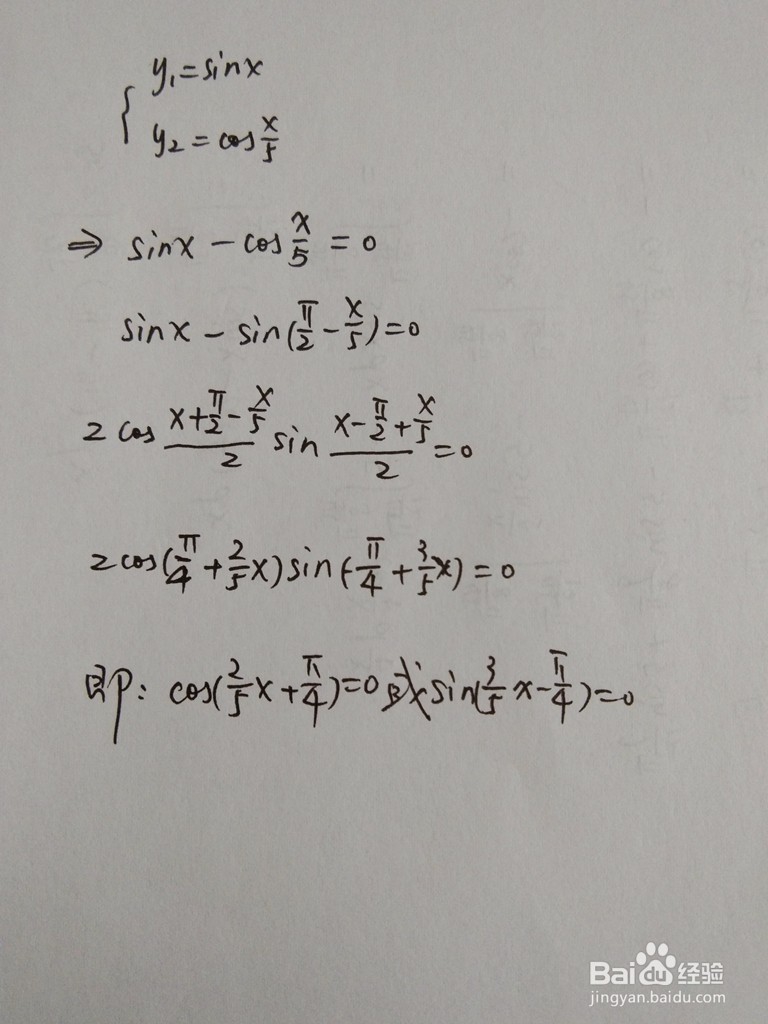 y₁=sinx
y₂=cos x/5
⇒ sinx - cos x/5 = 0
sinx - sin(π/2 - x/5)=0
2 cos (x+π/2-x/5)/2 sin (x-π/2+x/5)/2 =0
2cos(π/4+2/5x)sin(-π/4+3/5x)=0
即: cos(2/5x+π/4)=0或sin(3/5x-π/4)=0
Baidu经验
jingyan.baidu.com